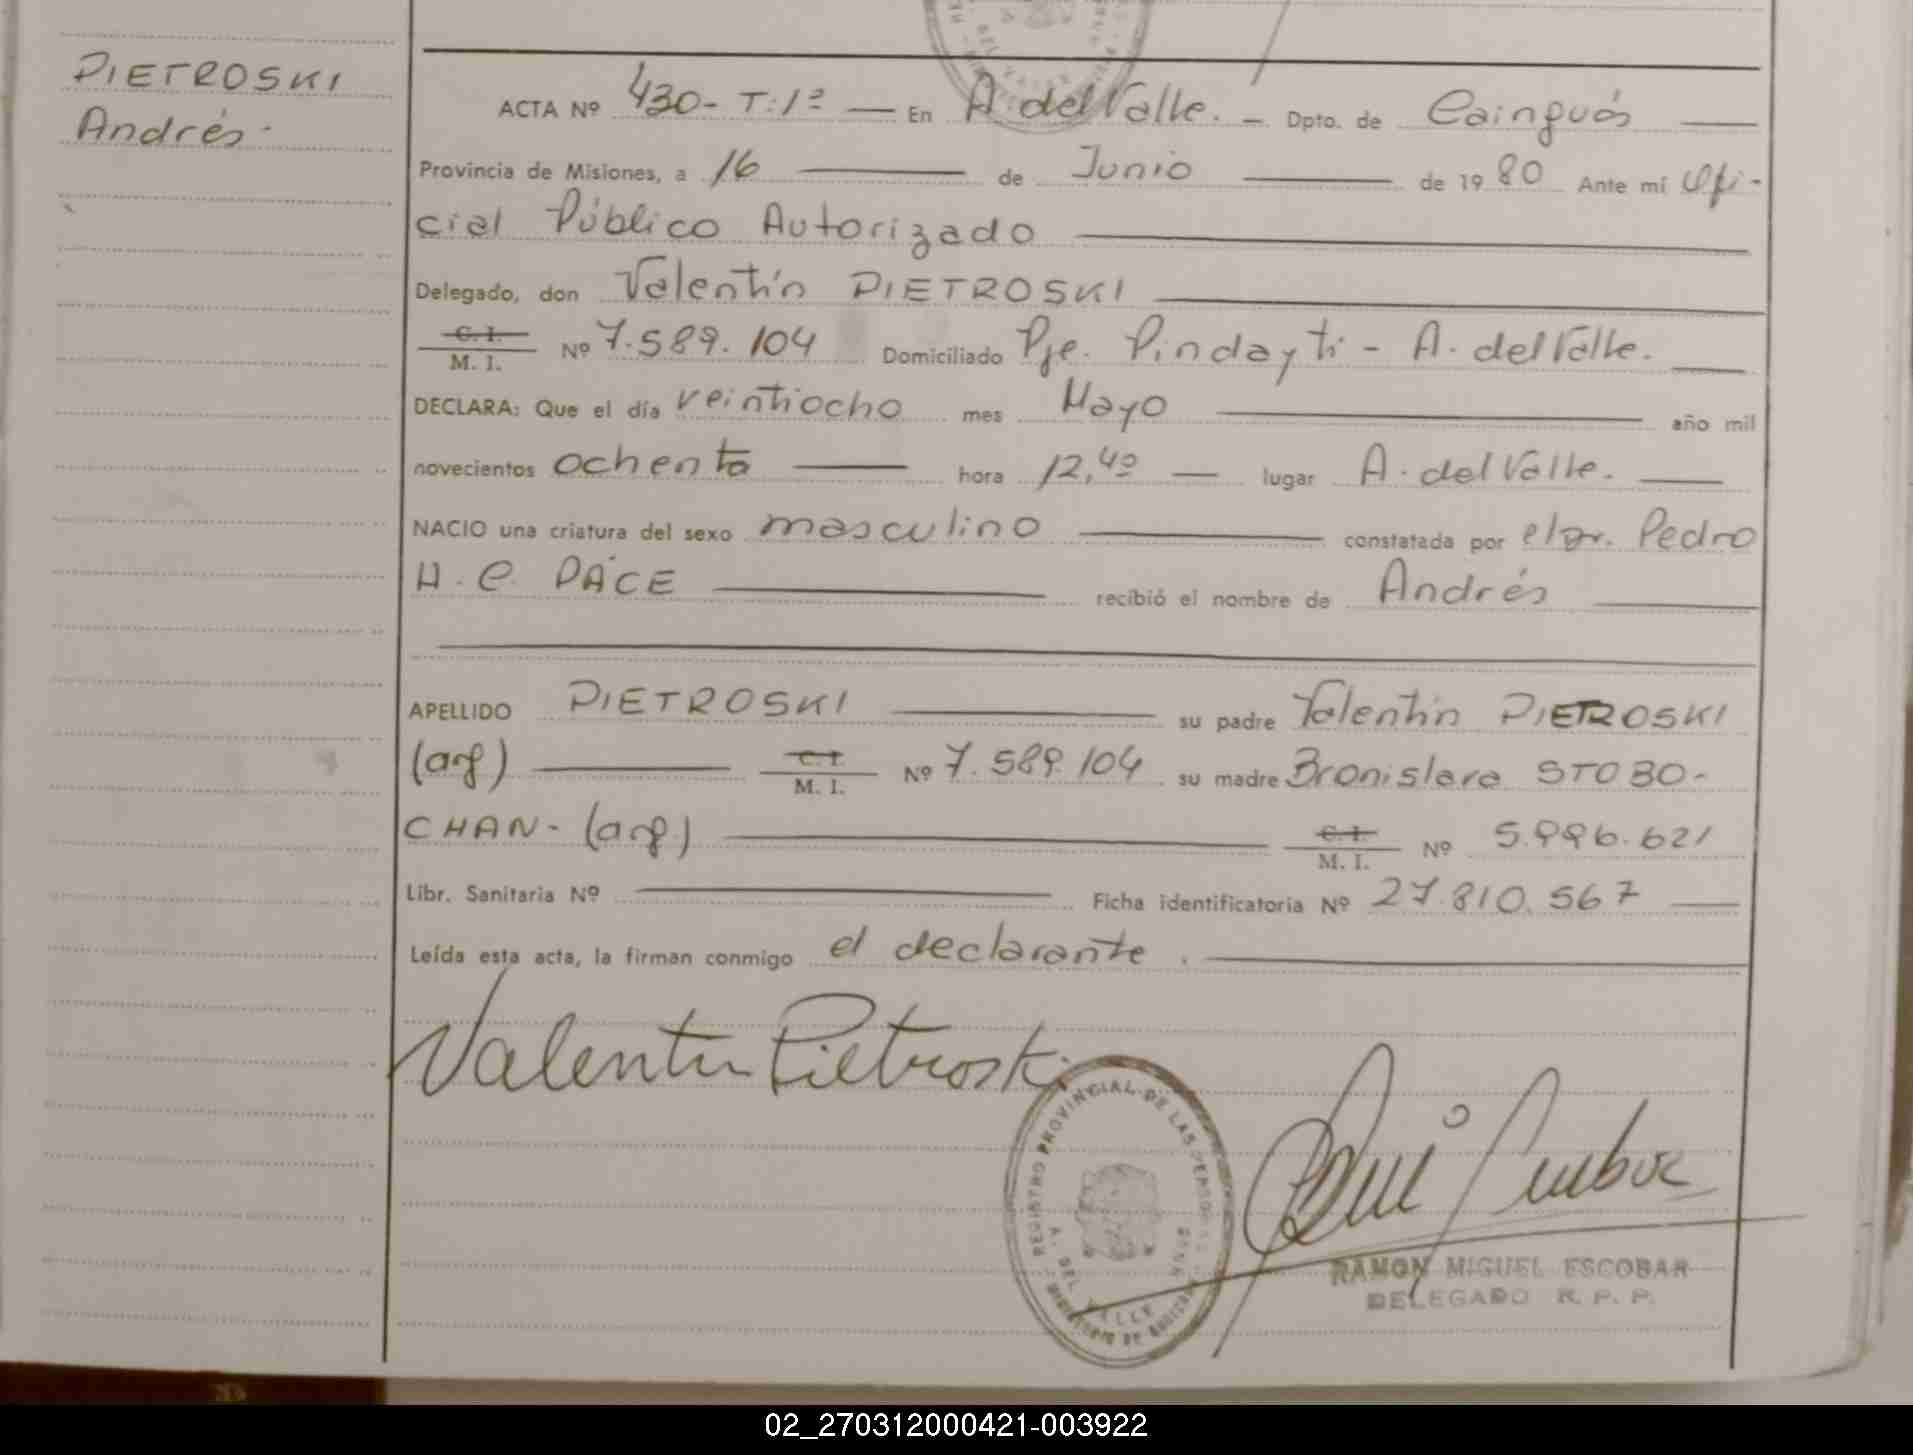 PIETROSKI
Andrés.
ACTA Nº 430- T:1º — En A. del Valle. — Dpto. de Cainguás
Provincia de Misiones, a 16 de Junio de 1980 Ante mí Ofi-
cial Público Autorizado
Delegado, don Valentín PIETROSKI
C. I.
M. I. Nº 7.589.104 Domiciliado Pje. Pindaytí - A. del Valle.
DECLARA: Que el día veintiocho mes Mayo año mil
novecientos ochenta hora 12,40 lugar A. del Valle.
NACIO una criatura del sexo masculino constatada por el Dr. Pedro
H. C. PÁCE recibió el nombre de Andrés
APELLIDO PIETROSKI su padre Valentín PIETROSKI
(arg) C. I. M. I. Nº 7.589.104 su madre Bronislava STOBO-
CHAN- (arg.) C. I. M. I. Nº 5.996.621
Libr. Sanitaria Nº Ficha identificatoria Nº 27.810.567
Leída esta acta, la firman conmigo el declarante.
Valentin Pietroski
REGISTRO PROVINCIAL DE LAS PERSONAS
A. DEL VALLE
RAMON MIGUEL ESCOBAR
DELEGADO R. P. P.
02_270312000421-003922